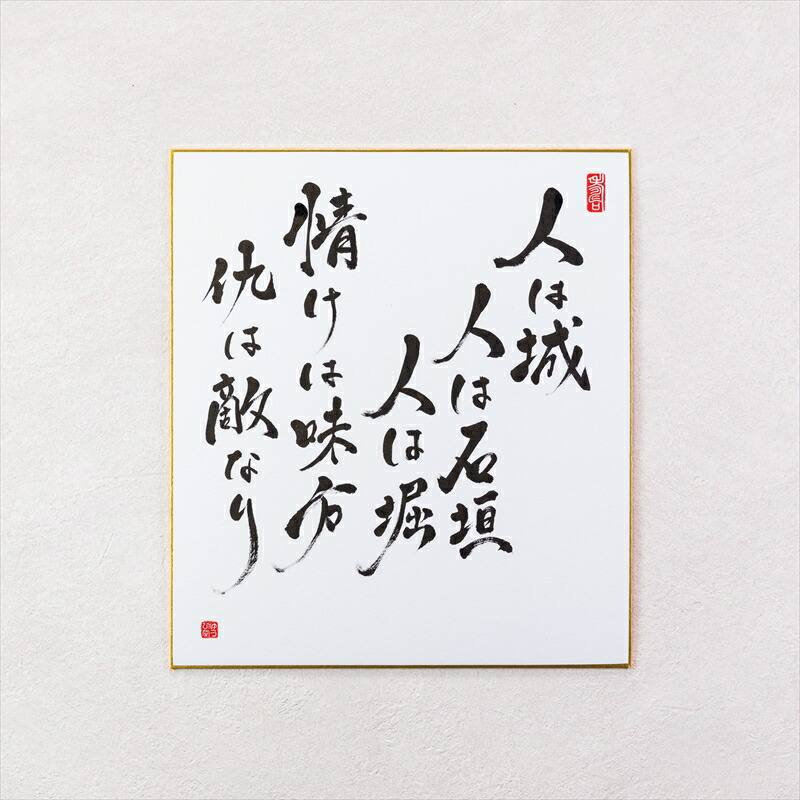 人は城
人は石垣
人は堀
情けは味方
仇は敵なり